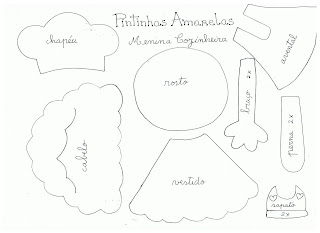 Pintinhas Amarelas
Menina Cozinheira
chapéu
avental
rosto
braço
2 x
perna
2 x
cabelo
vestido
sapato
2 x